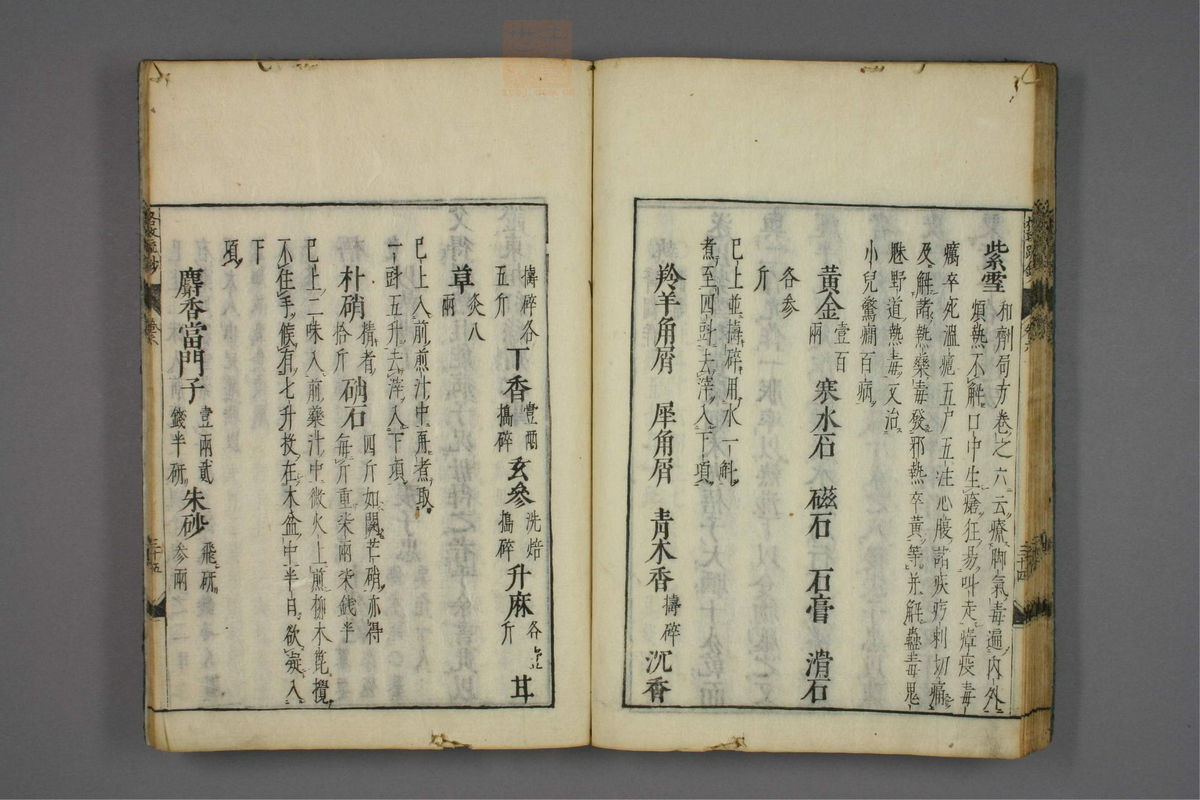 紫雪 和劑句方卷之六云療脚氣毒遍內外
煩熱不解口中生瘡狂易叫走瘴疫毒
癘卒死溫瘧五尸五注心腹諸疾㽲刺切痛
及解諸熱藥毒發邪熱卒黃等并解蠱毒鬼
魅野道熱毒又治
小兒驚癇百病
黃金 壹百兩 寒水石 磁石 石膏 滑石
各參斤
已上並擣碎用水一斛
煮至四㪷去滓入下項
羚羊角屑 犀角屑 青木香 擣碎 沉香
擣碎各五斤 丁香 壹兩搗碎 玄參 洗焙搗碎 升麻 各斤 甘
草 炙八兩
已上入前煎汁中再煮取
一㪷五升去滓入下項
朴硝 精者拾斤 硝石 四斤如闕芒硝亦得每斤重柒兩柒錢半
已上二味入前藥汁中微火上煎柳木篦攪
不住手候有七升投在木盆中半日欲凝入
下
項
麝香當門子 壹兩貳錢半研 朱砂 飛研參兩
三十四
三十五